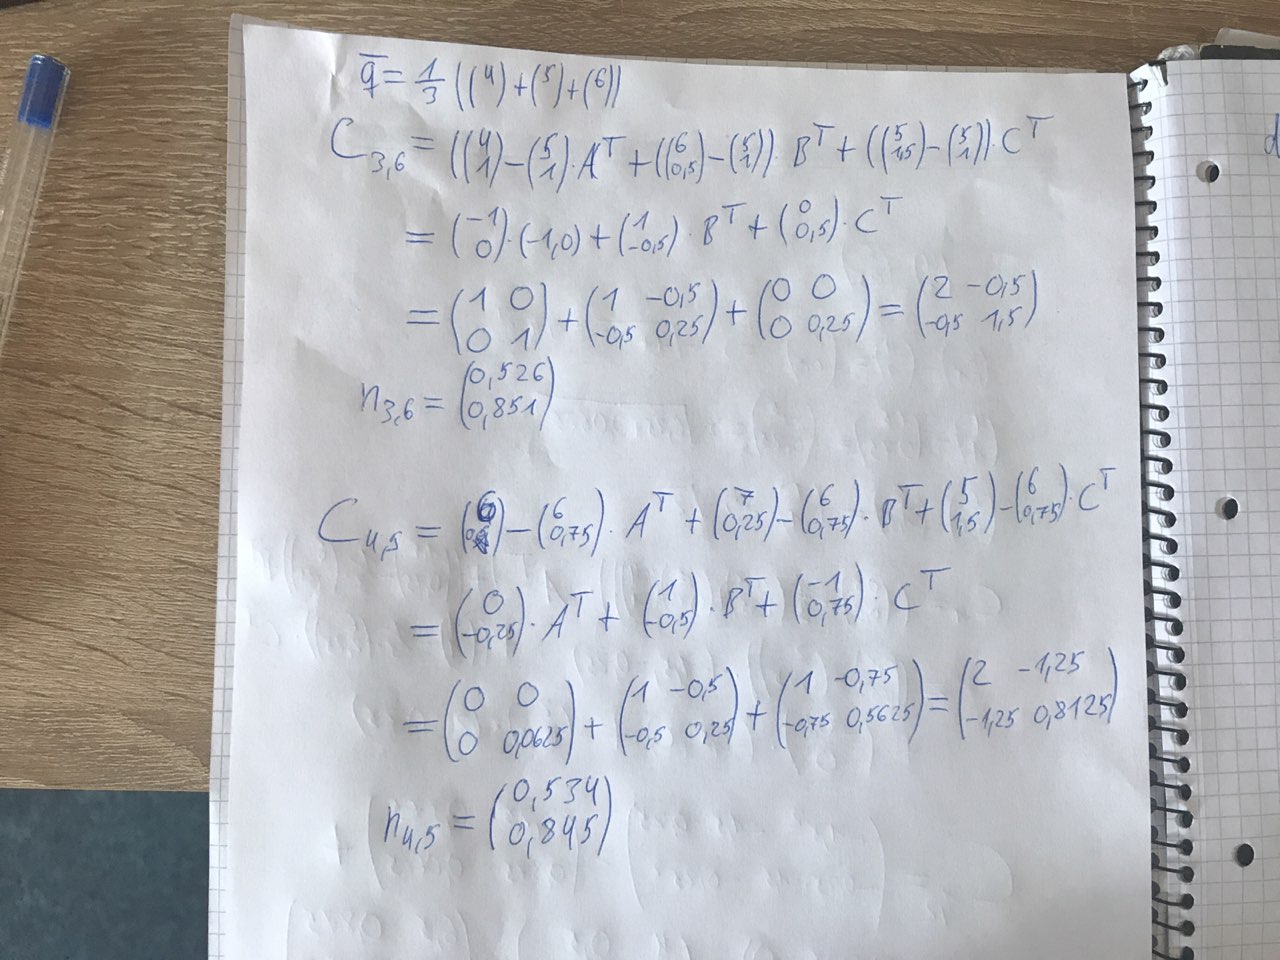 q̄ = 1/3 ((4)+(5)+(6))
C₃,₆ = ((4 1)-(5 1)·Aᵀ+((6 0,5)-(5 1))·Bᵀ+((5 1,5)-(5 1))·Cᵀ
= (-1 0)·(-1,0)+(1 -0,5)·Bᵀ+(0 0,5)·Cᵀ
= (1 0 0 1)+(1 -0,5 -0,5 0,25)+(0 0 0 0,25)=(2 -0,5 -0,5 1,5)
n₃,₆ = (0,526 0,851)
C₄,₅ = (6)-(6 0,75)·Aᵀ+(7 0,25)-(6 0,75)·Bᵀ+(5 1,5)-(6 0,75)·Cᵀ
= (0 -0,25)·Aᵀ+(1 -0,5)·Bᵀ+(-1 0,75)·Cᵀ
= (0 0 0 0,0625)+(1 -0,5 -0,5 0,25)+(1 -0,75 -0,75 0,5625)=(2 -1,25 -1,25 0,8125)
n₄,₅ = (0,534 0,845)
d